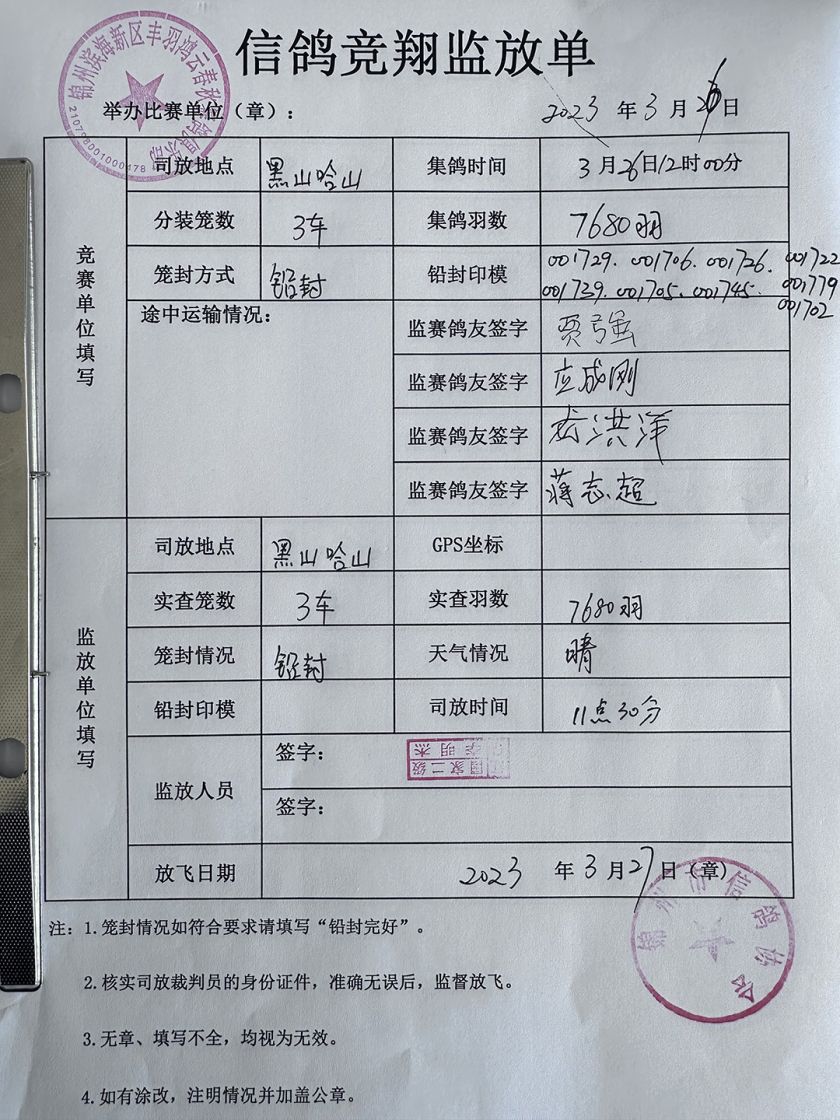 信鸽竞翔监放单
举办比赛单位（章）： 2023 年 3 月 26 日
锦州滨海新区丰羽鸿云春秋
竞赛单位填写
司放地点 黑山哈山 集鸽时间 3 月 26 日 12 时 00 分
分装笼数 3车 集鸽羽数 7680羽
笼封方式 铅封 铅封印模 001729. 001706. 001726. 001722
001739. 001705. 001745. 001779
001702
途中运输情况： 监赛鸽友签字 贾强
监赛鸽友签字 应成刚
监赛鸽友签字 洪洋
监赛鸽友签字 蒋志超
监放单位填写
司放地点 黑山哈山 GPS坐标
实查笼数 3车 实查羽数 7680羽
笼封情况 铅封 天气情况 晴
铅封印模 司放时间 11点30分
监放人员 签字： 李明杰
国家二级
签字：
放飞日期 2023 年 3 月 27 日（章）
锦州市信鸽协会
注：1.笼封情况如符合要求请填写“铅封完好”。
2.核实司放裁判员的身份证件，准确无误后，监督放飞。
3.无章、填写不全，均视为无效。
4.如有涂改，注明情况并加盖公章。